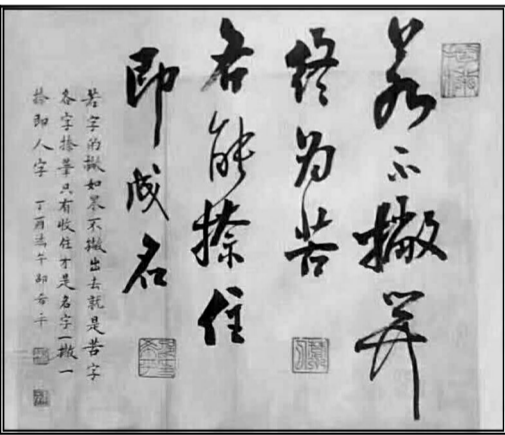 若不撇开
终为苦
各能捺住
即成名
若字的撇如果不撇出去就是苦字
各字捺筆只有收住才是名字一撇一
捺即人字 丁酉端午